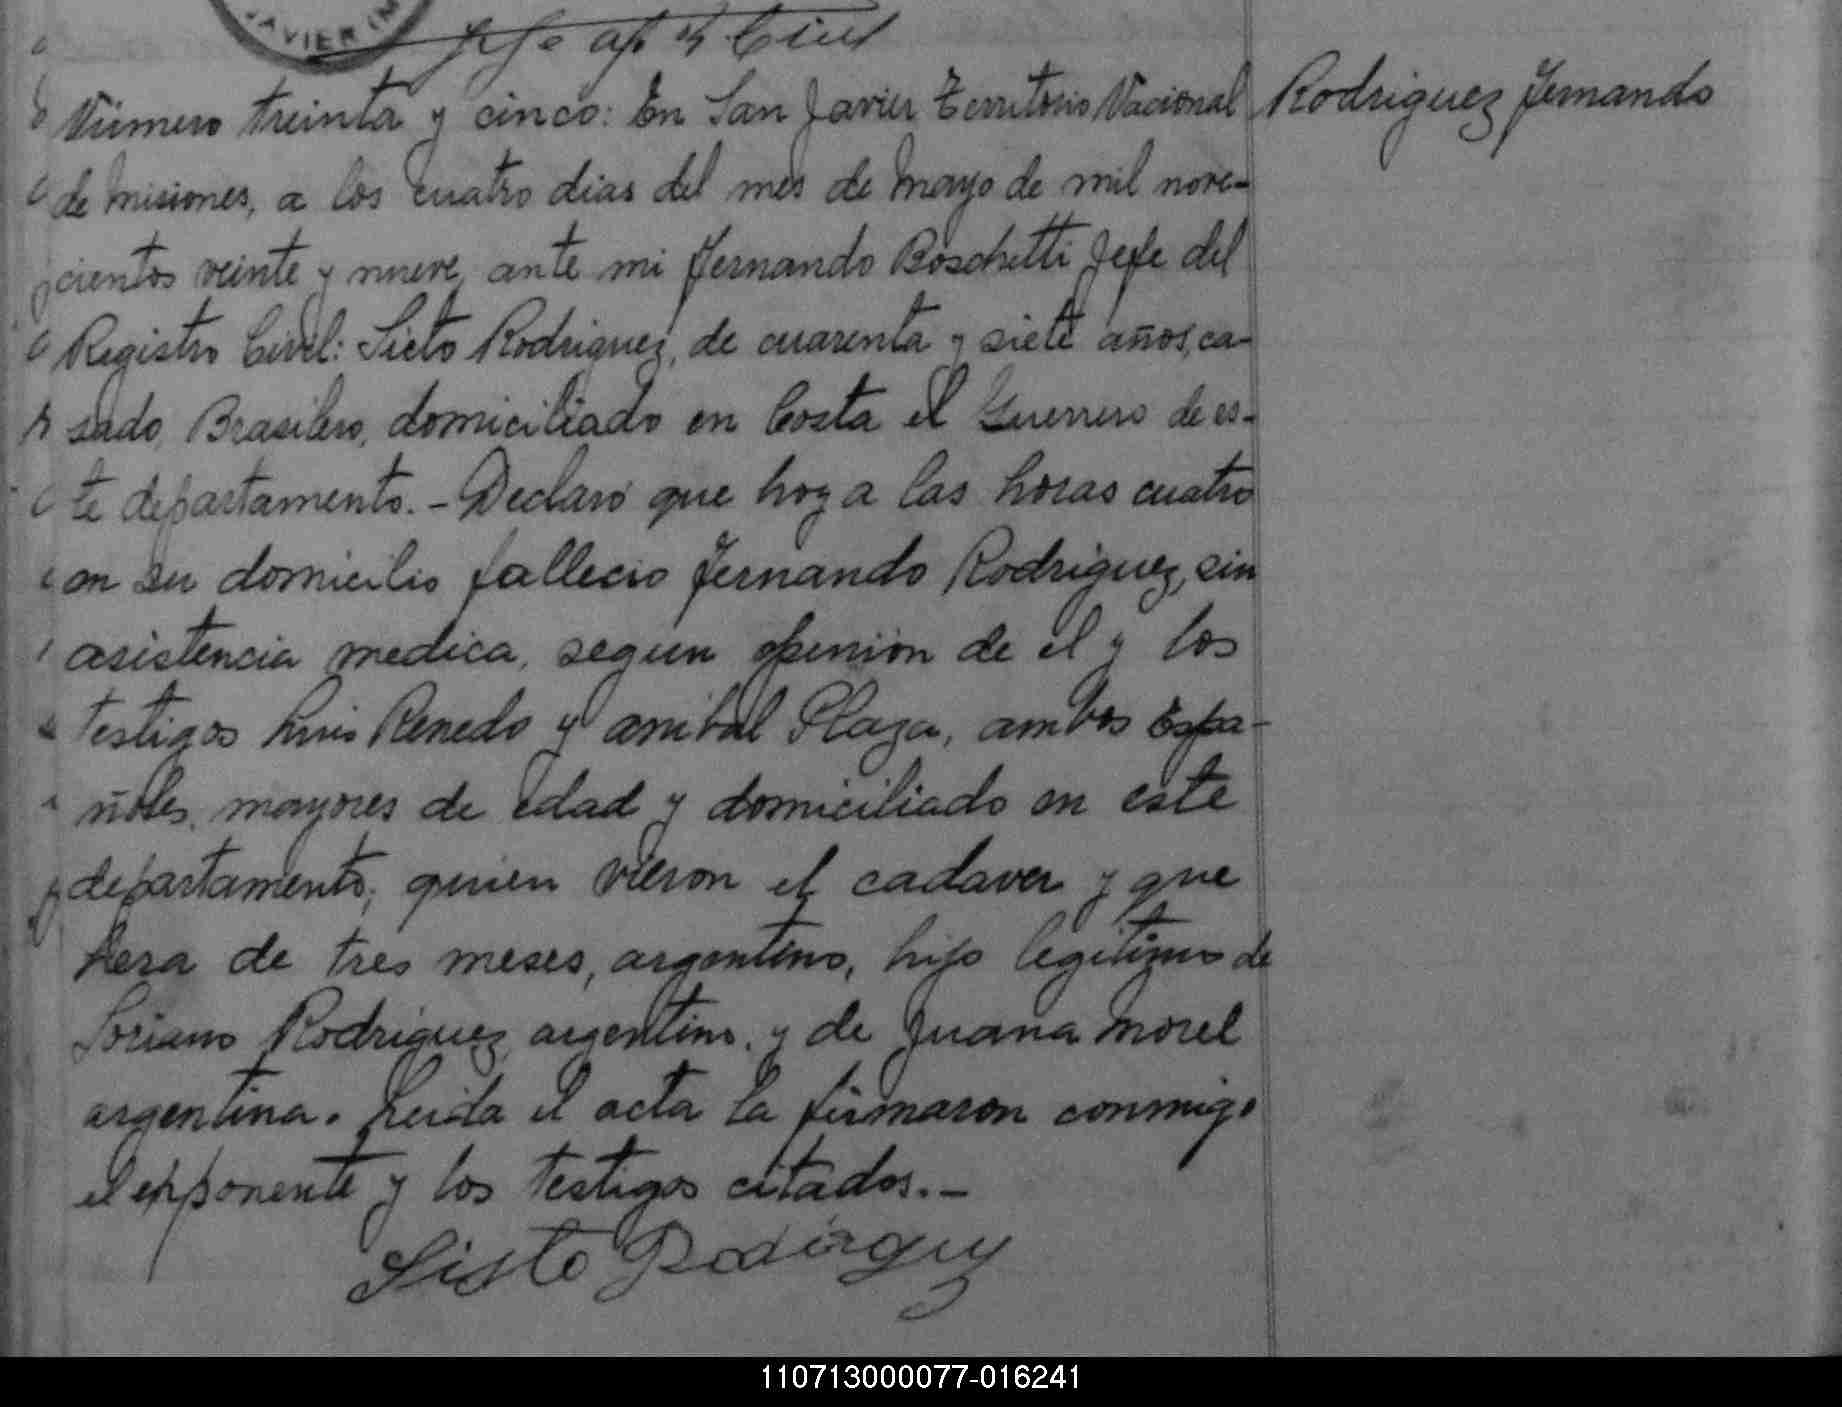 JAVIER (M
Jefe del R Civil
Número treinta y cinco: En San Javier Territorio Nacional
Rodriguez Fernando
de Misiones, a los cuatro dias del mes de Mayo de mil nove-
cientos veinte y nueve, ante mi Fernando Boschetti Jefe del
Registro Civil: Sicto Rodriguez, de cuarenta y siete años, ca-
sado, Brasilero, domiciliado en Costa el Guerrero de es-
te departamento. - Declaró que hoy a las horas cuatro
en su domicilio fallecio Fernando Rodriguez, sin
asistencia medica, segun openión de el y los
testigos Luis Renedo y anibal Plaza, ambos Espa-
ñoles, mayores de edad y domiciliado en este
departamento, quien vieron el cadaver y que
hera de tres meses, argentino, hijo legitimo de
Soriano Rodriguez, argentino, y de Juana Morel
argentina. Leida el acta la firmaron conmigo
el exponente y los testigos citados. -
Sisto Rodirguez
110713000077-016241